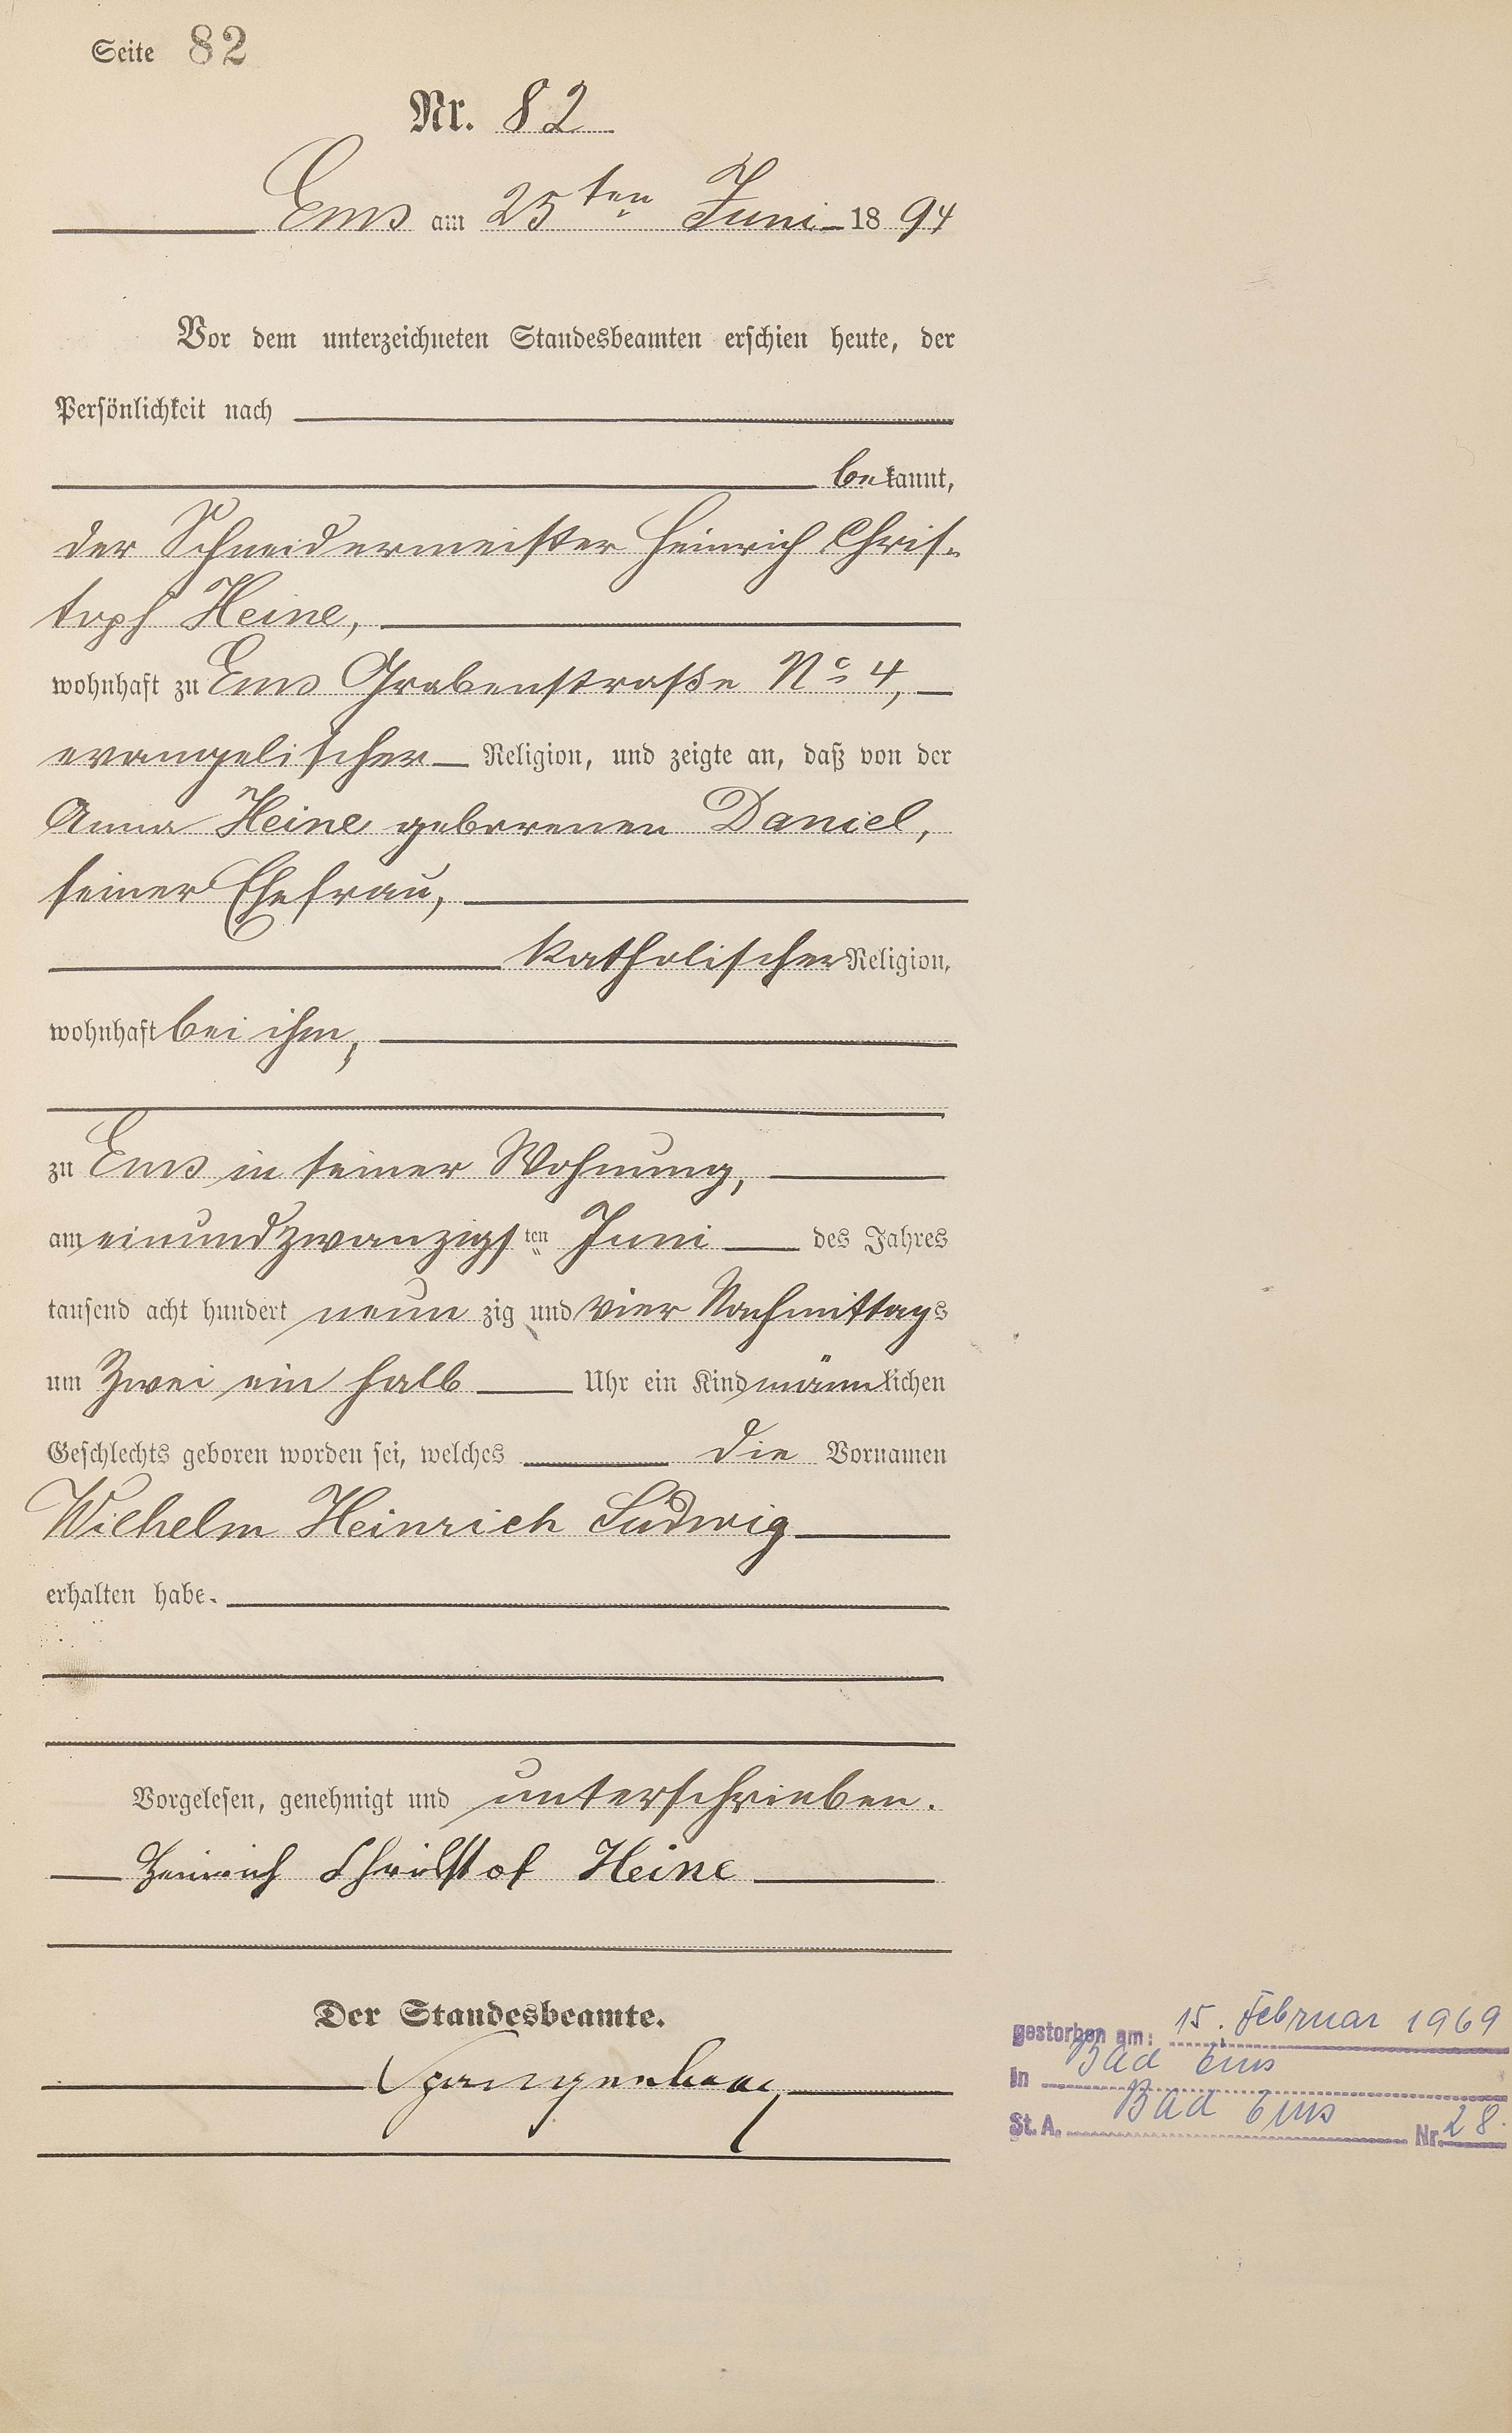 Seite 82
Nr. 82
Ems am 25ten Juni 1894
Vor dem unterzeichneten Standesbeamten erschien heute, der
Persönlichkeit nach
bekannt,
der Schneidermeister Heinrich Chris-
toph Heine,
wohnhaft zu Ems Grabenstraße No 4,
evangelischer Religion, und zeigte an, daß von der
Anna Heine geborenen Daniel,
seiner Ehefrau,
katholischer Religion,
wohnhaft bei ihm,
zu Ems in seiner Wohnung,
am einundzwanzigsten Juni des Jahres
tausend acht hundert neunzig und vier Nachmittags
um zwei ein halb Uhr ein Kind männlichen
Geschlechts geboren worden sei, welches die Vornamen
Wilhelm Heinrich Ludwig
erhalten habe.
Vorgelesen, genehmigt und unterschrieben.
Heinrich Christof Heine
Der Standesbeamte.
Spangenberg
gestorben am: 15. Februar 1969
In Bad Ems
St. A. Bad Ems Nr. 28.